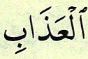 ٱلْعَذَابِ